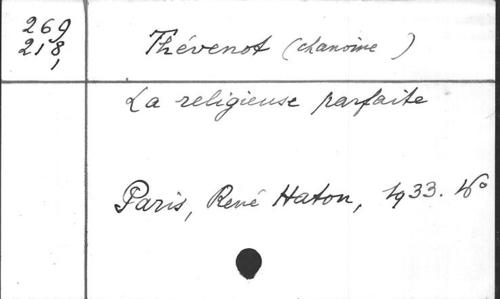 269
218,
1
Thévenot (chanoine)
La religieuse parfaite
Paris, René Haton, 1933. 16°